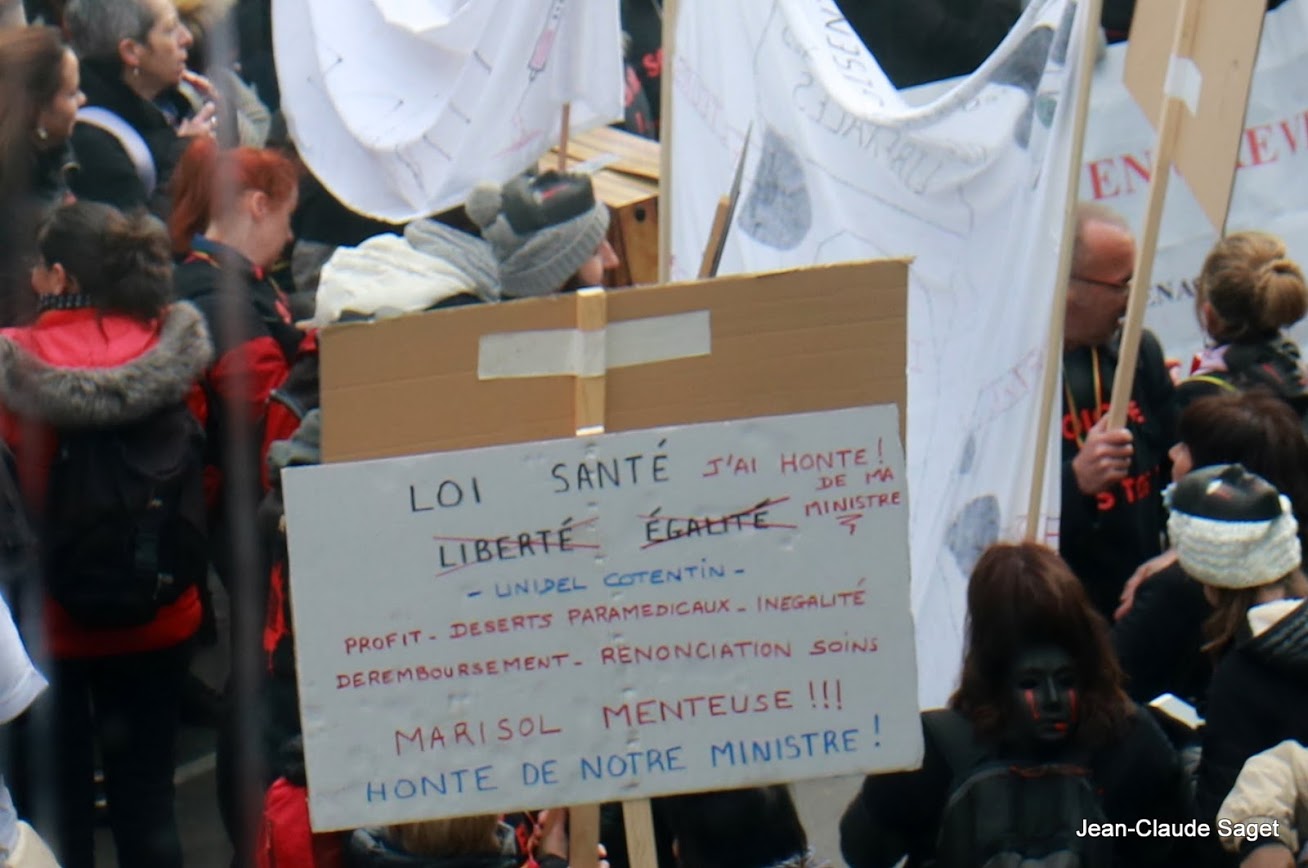 LIBERALES
EN GREVE
LOI SANTÉ J'AI HONTE!
DE MA
MINISTRE
LIBERTÉ ÉGALITÉ
- UNIDEL COTENTIN -
PROFIT - DESERTS PARAMEDICAUX - INEGALITÉ
DEREMBOURSEMENT - RENONCIATION SOINS
MARISOL MENTEUSE !!!
HONTE DE NOTRE MINISTRE !
Jean-Claude Saget